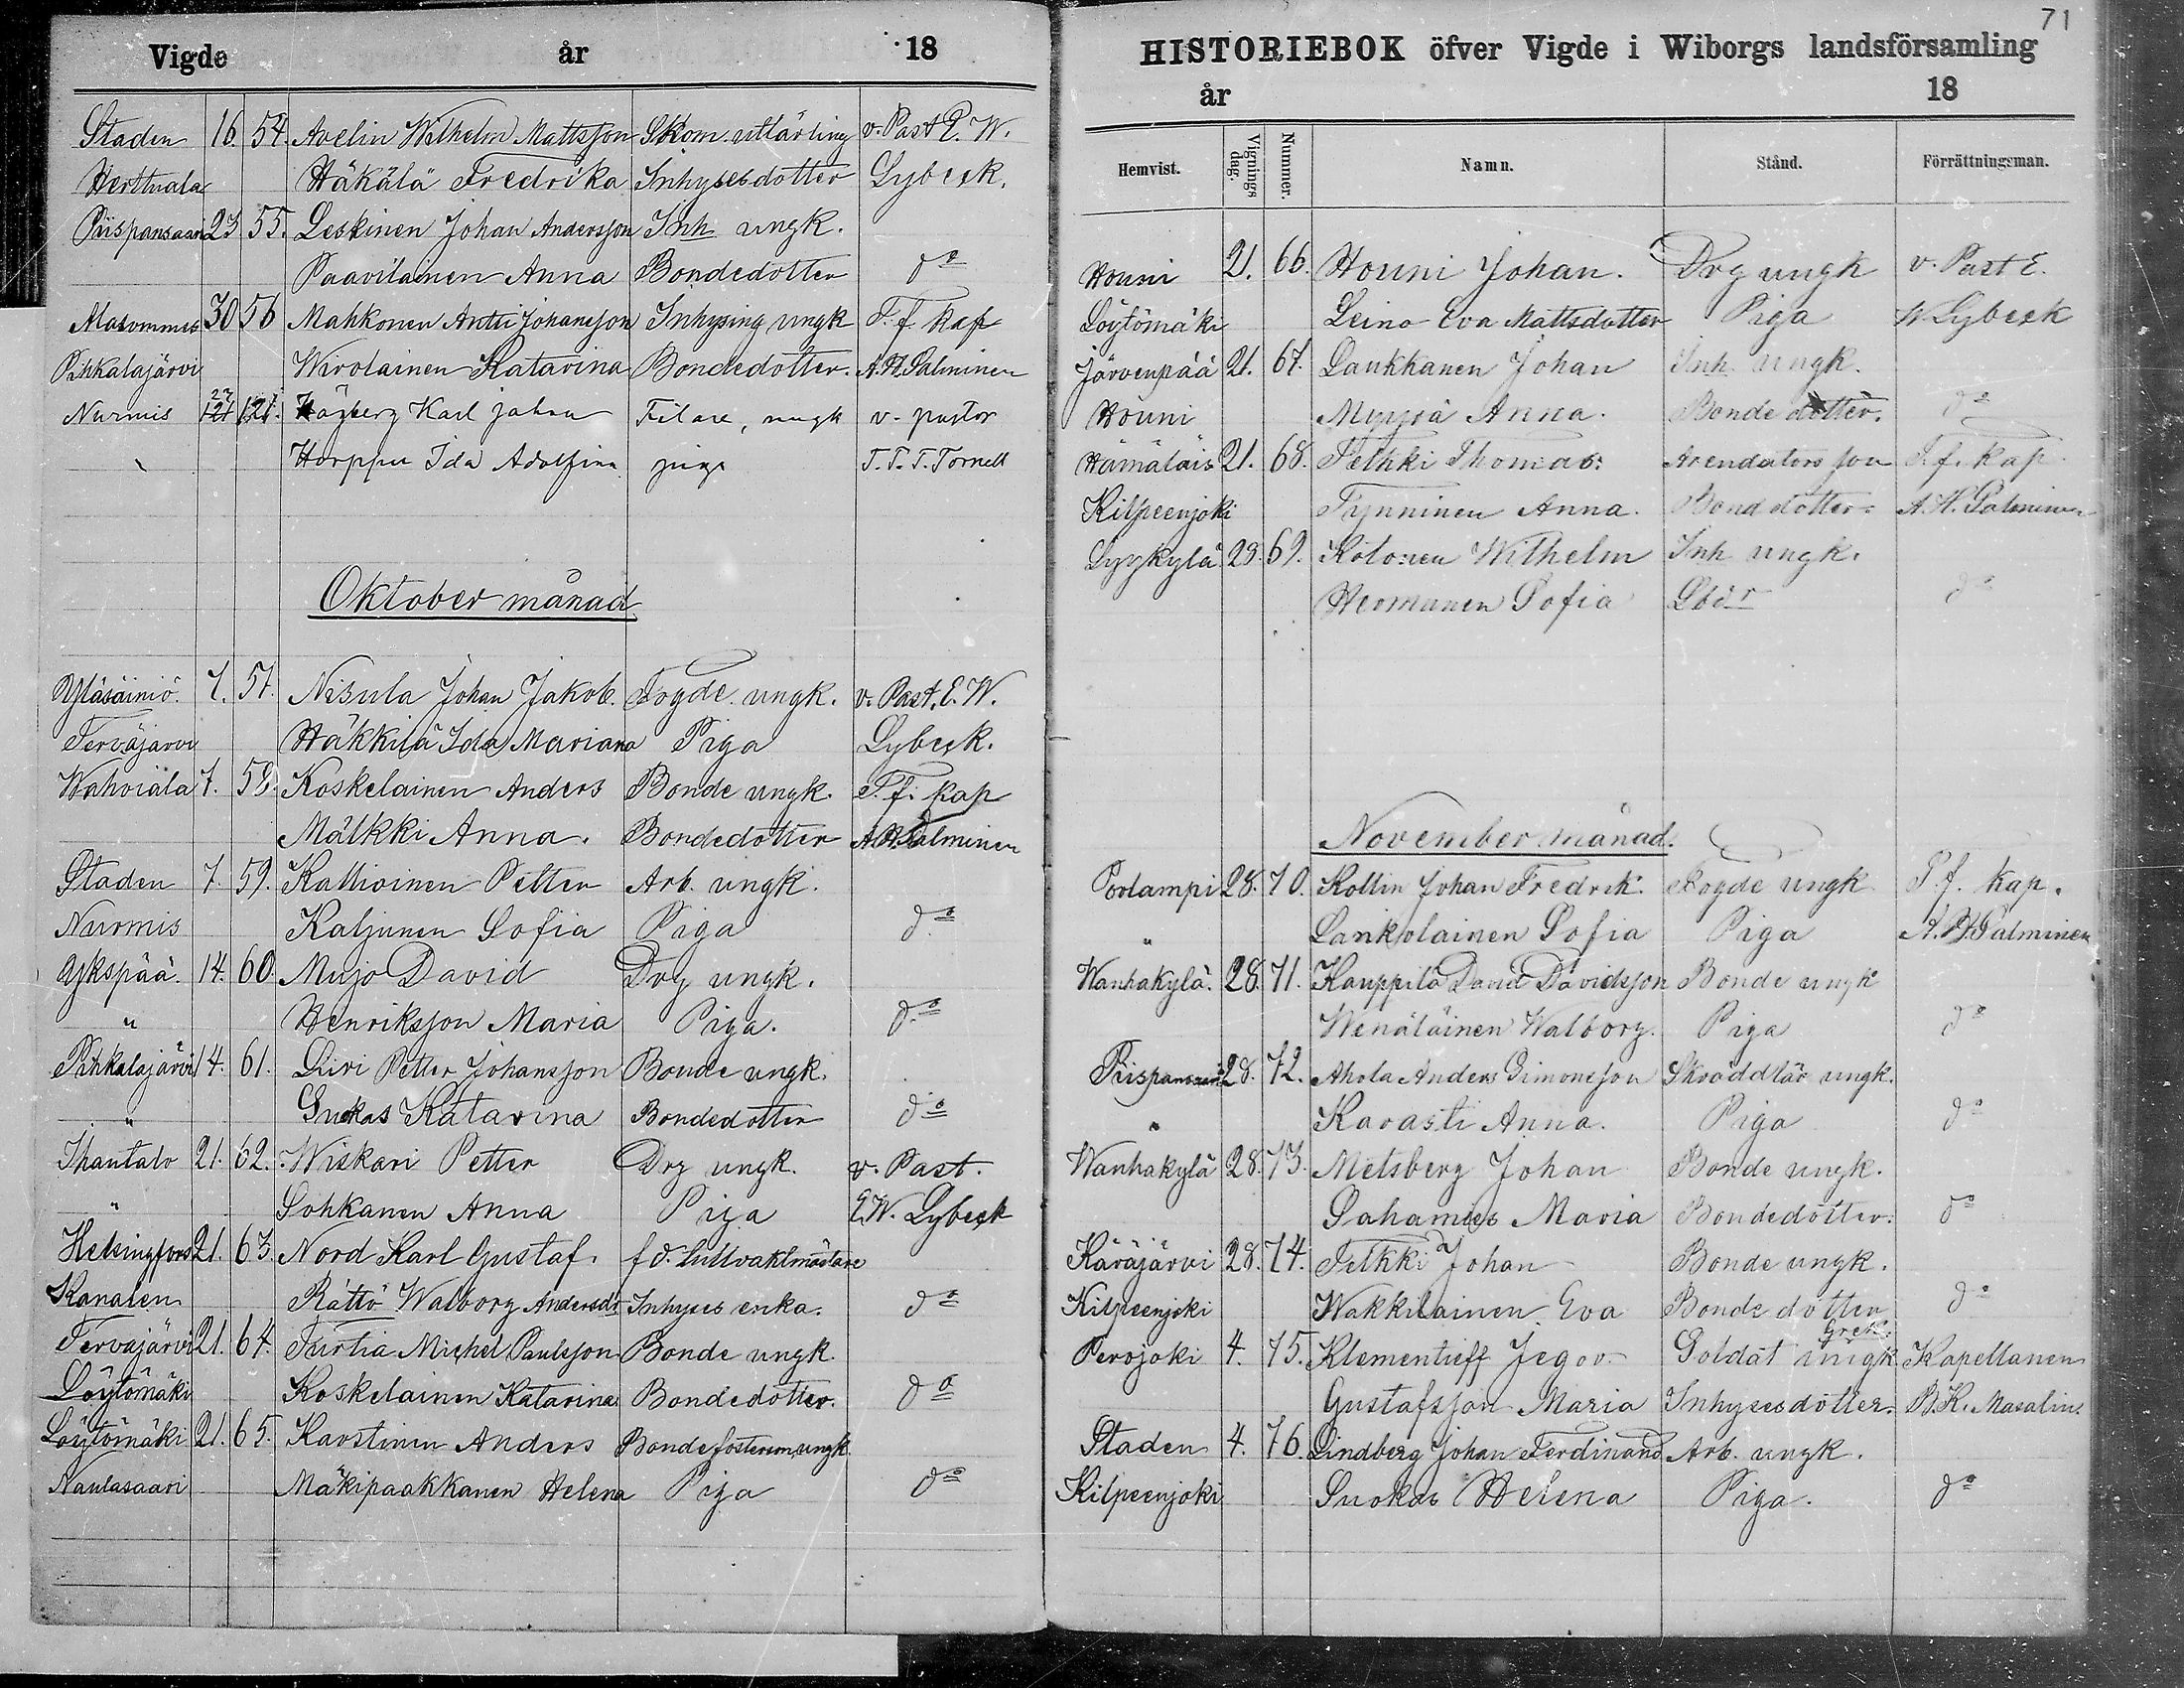 Vigde år 18
Staden 16. 54. Avelin Wilhelm Mattsson Skom. utlärling v. Past E. W.
Herttuala Häkälä Fredrika Inhysesdotter Lybeck.
Piispansaari 23 55. Leskinen Johan Andersson Inh ungk.
Paavilainen Anna Bondedotter do
Alasommes 30 56 Mahkonen Antti Johansson T. f. Kap
Pihkalajärvi Wirolainen Katarina Bondedotter. A. H. Salminen
Nurmis 121. Högberg Karl Johan Filare, ungk v. pastor
Horppu Ida Adolfina piga T. T. T. Tornell
Oktober månad
Yläsäiniö. 7. 57. Nisula Johan Jakob. Fogde ungk. v. Past. E. W.
Tervajärvi Häkkilä Ida Mariana Piga Lybeck.
Wahviala 7. 58. Koskelainen Anders Bonde ungk. T. f. kap
Mälkki Anna. Bondedotter A. H. Salminen
Staden 7. 59. Kallioinen Petter Arb. ungk.
Nurmis Kaljunen Sofia Piga do
Ykspää. 14. 60. Mujo David Drg ungk.
" Henriksson Maria Piga. do
Pihkalajärvi 14. 61. Liri Petter Johansson Bonde ungk.
" Suokas Katarina Bondedotter do
Ihantala 21. 62. Wiskari Petter Drg ungk. v. Past.
" Sohkanen Anna Piga E. W. Lybeck
Helsingfors 21. 63. Nord Karl Gustaf. f d. tullvaktmästare
Kanalen Rättö Walborg Andersdr Inhyses enka. do
Tervajärvi 21. 64. Turtia Michel Paulsson Bonde ungk.
Löytömäki Koskelainen Katarina Bondedotter. do
Löytömäki 21. 65. Karstinen Anders Bonde fosterson, ungk.
Naulasaari Mäkipaakkanen Helena Piga do
71
HISTORIEBOK öfver Vigde i Wiborgs landsförsamling
år 18
Hemvist. Vignings dag. Nummer. Namn. Stånd. Förrättningsman.
Houni 21. 66. Houni Johan. Drg ungk v. Past E.
Löytömäki Leino Eva Mattsdotter Piga W Lybeck
Järvenpää 21. 67. Laukkanen Johan Inh. ungk.
Houni Myyrä Anna. Bonde dotter. do
Hämäläis 21. 68. Telkki Thomas. Arendators son T. f. kap.
Kilpeenjoki Tynninen Anna. Bond dotter. A. H. Salminen
Lyykylä 29. 69. Kolonen Wilhelm Inh ungk.
Hermanen Sofia Lbdr do
November månad.
Porlampi 28. 70. Kollin Johan Fredrik. Fogde ungk T. f. kap.
" Lankolainen Sofia Piga A. H. Salminen
Wanhakylä. 28. 71. Kauppila David Davidsson Bonde ungk
Wenäläinen Walborg. Piga do
Piispansaari 28. 72. Ahola Anders Simonsson Skräddlär ungk.
" Karasti Anna. Piga do
Wanhakylä 28. 73. Metsberg Johan Bonde ungk.
Sahamies Maria Bondedotter. do
Käräjärvi 28. 74. Telkki Johan Bonde ungk.
Kilpeenjoki Wakkilainen Eva Bonde dotter do
Perojoki 4. 75. Klementieff Jegor Soldat Grek. ungk Kapellanen
Gustafsson Maria Inhysesdotter. B. K. Masalin.
Staden 4. 76. Lindberg Johan Ferdinand Arb. ungk.
Kilpeenjoki Suokas Helena Piga. do